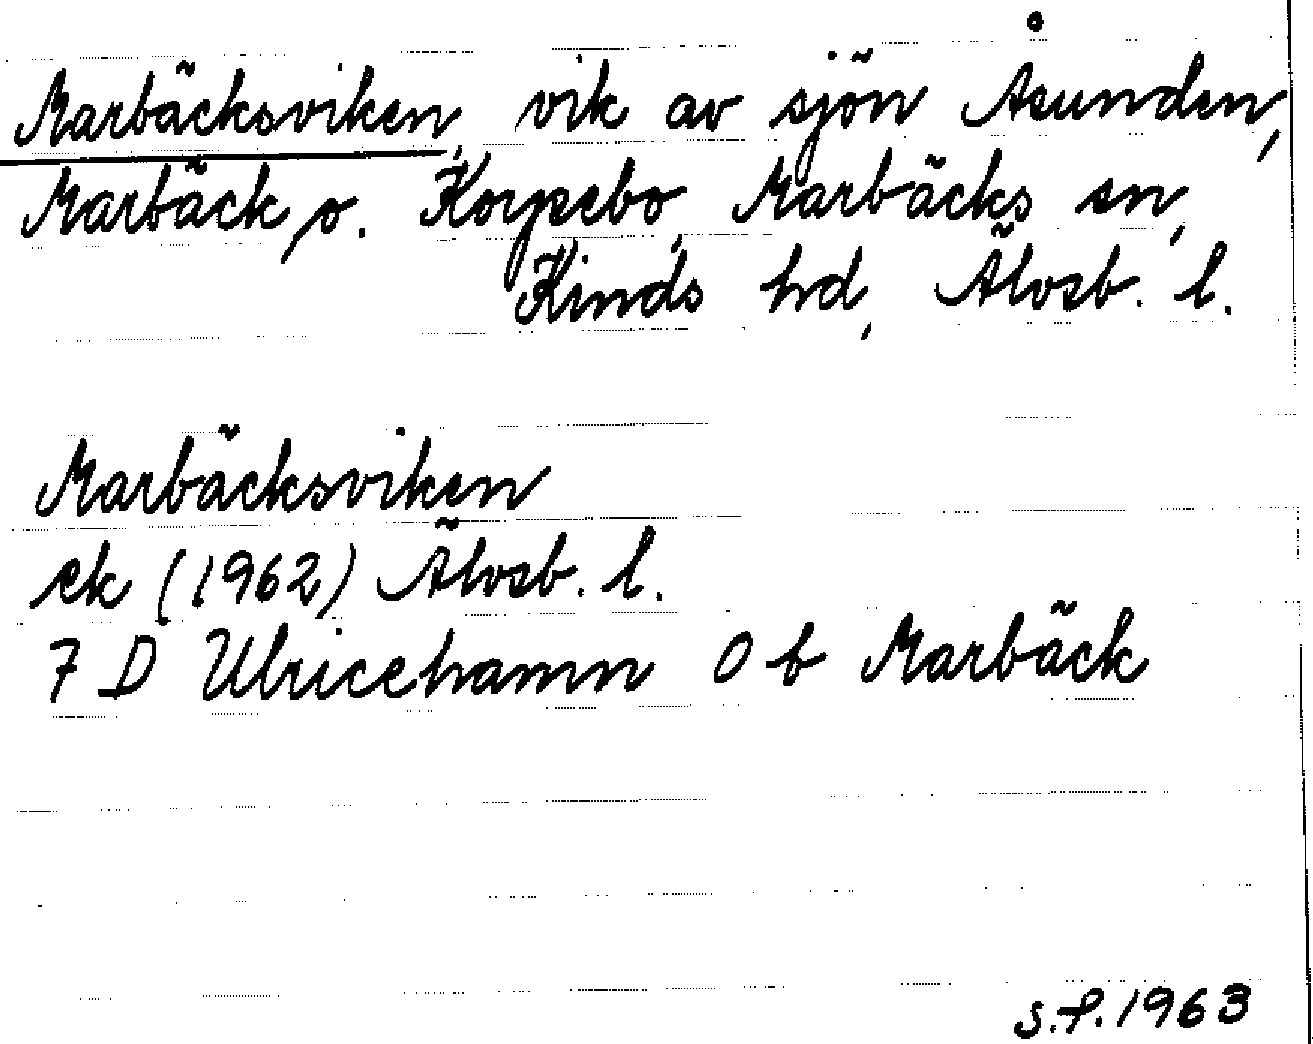 Marbäcksviken, vik av sjön Åsunden,
Marbäck o. Korpebo, Marbäcks sn,
Kinds hd, Älvsb. l.
Marbäcksviken
ek (1962) Älvsb. l.
7 D Ulricehamn 0 b Marbäck
S.F. 1963